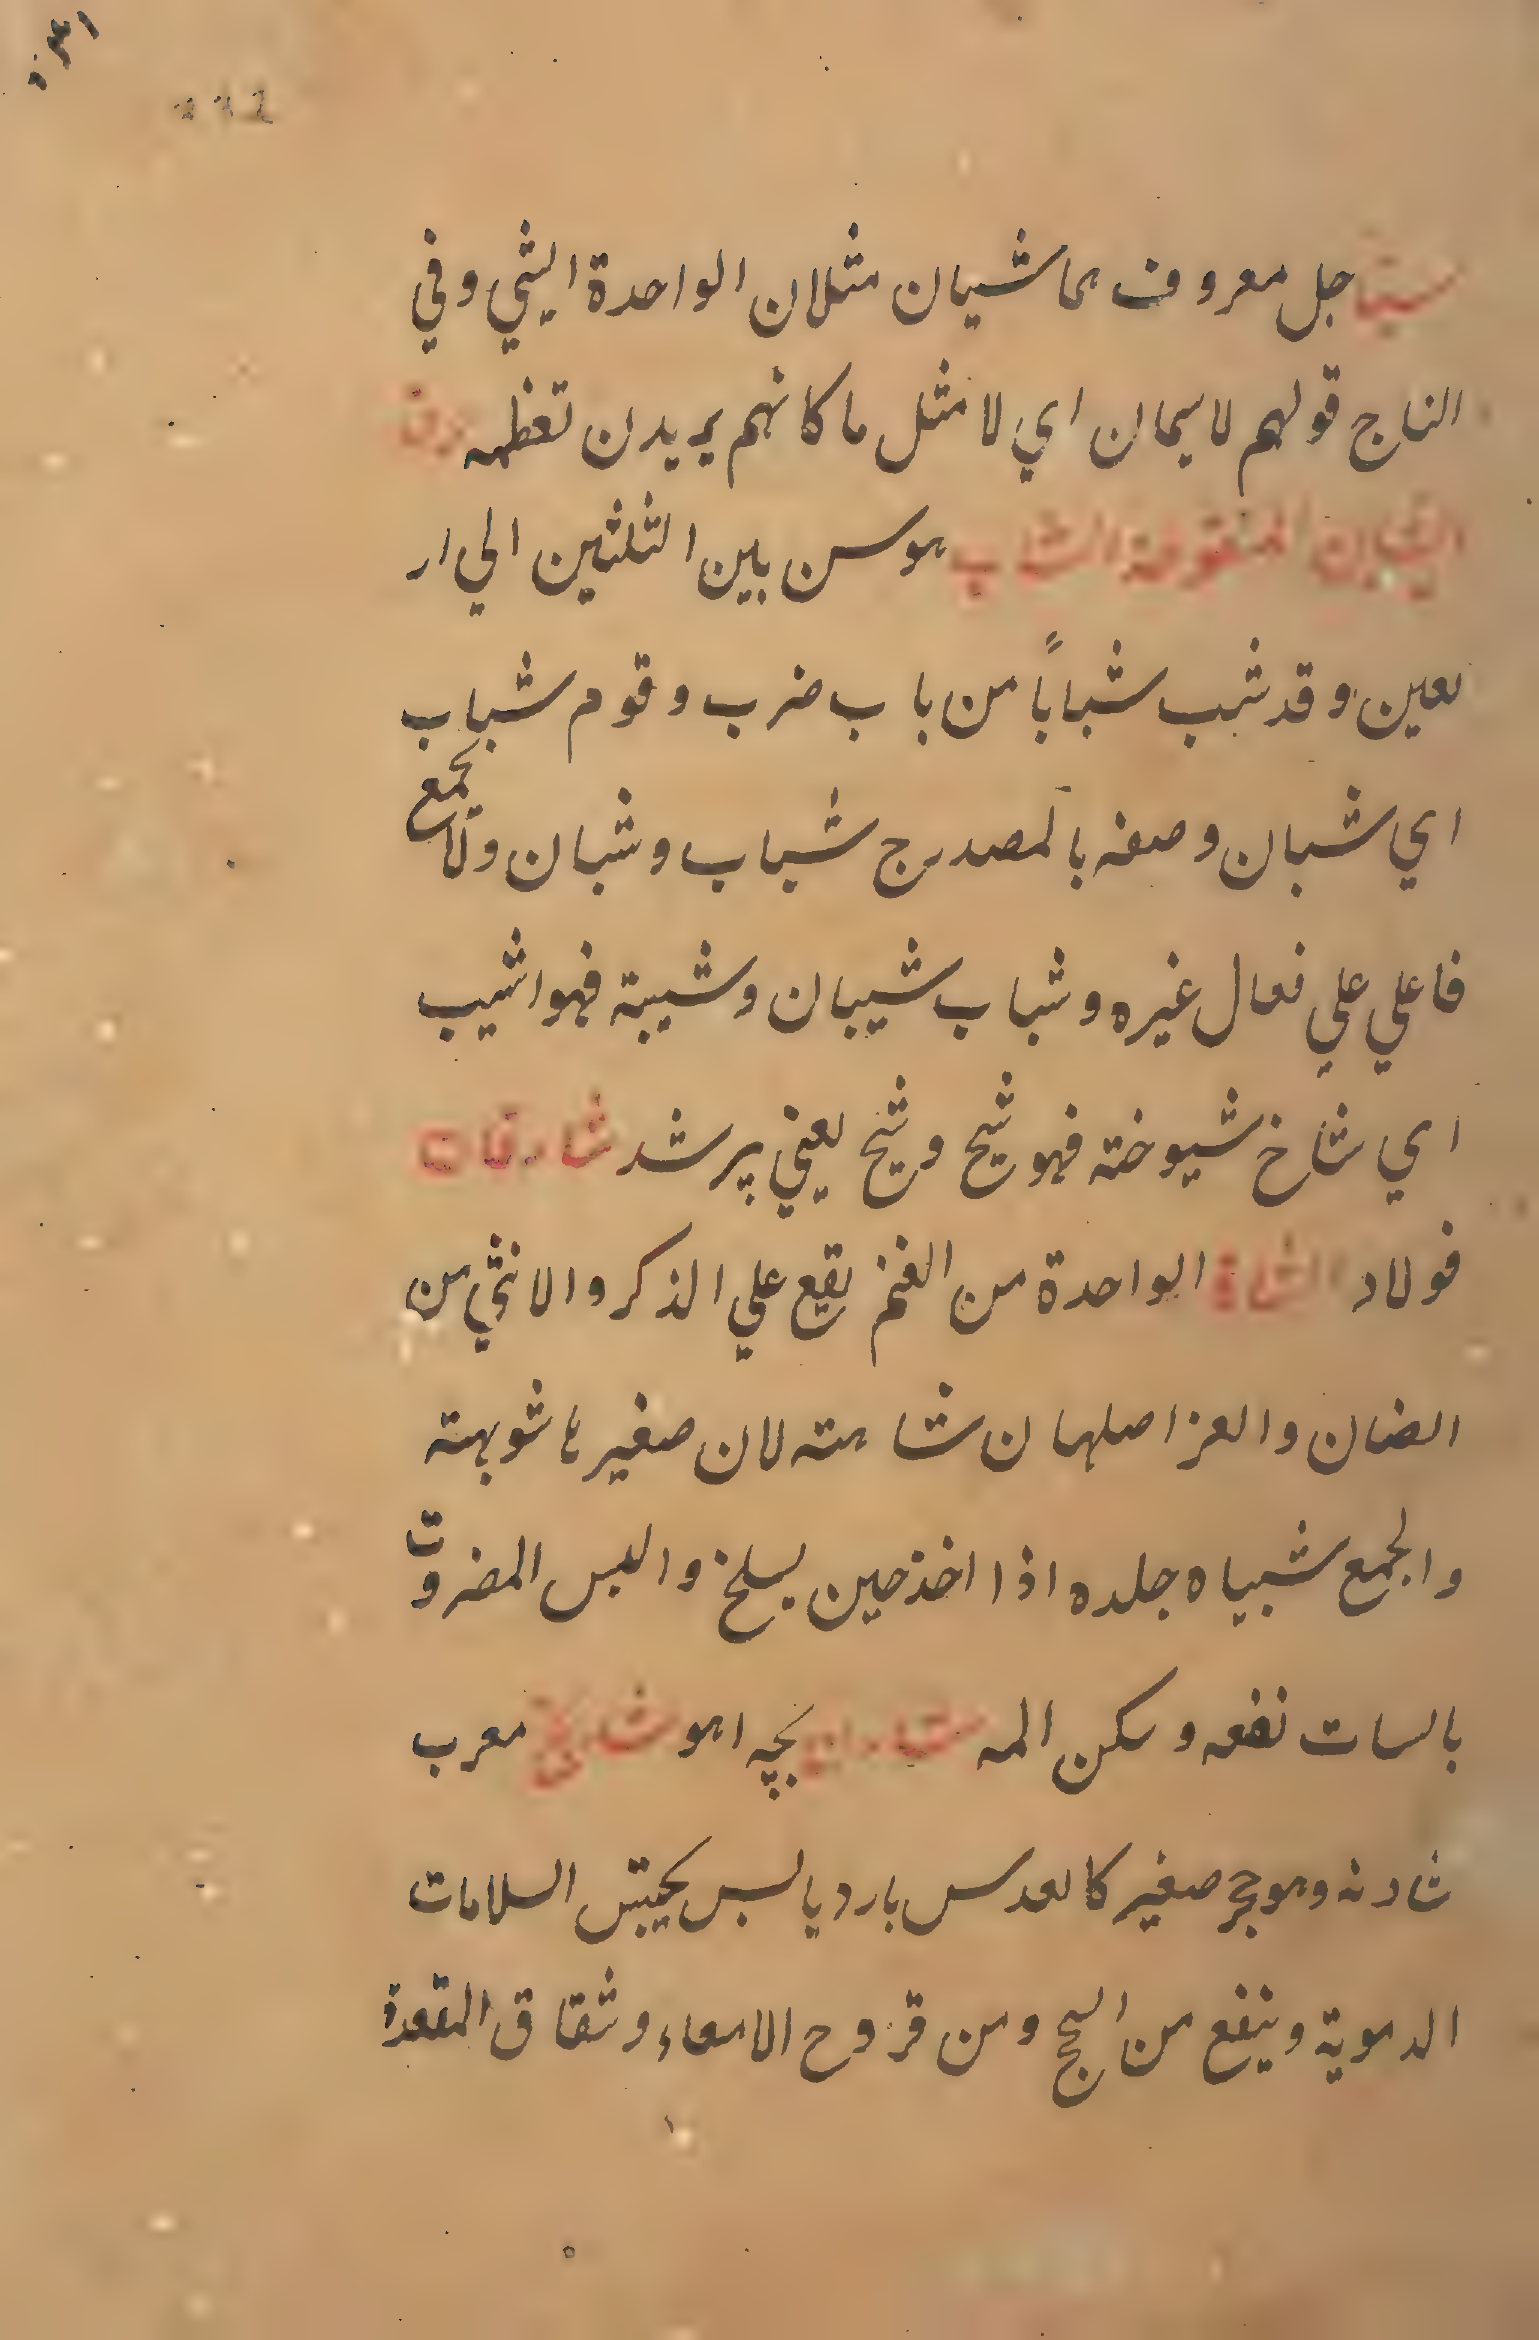 ۵۳۱
سیا جل معروف هما شیان مثلان الواحدة الیشي وفي
التاج قولهم لاسیمان اي لا مثل ما كانهم یریدن تعظیمه
الشین المفتوحة الشاب هو سن بین الثلثین الي ار
بعین وقد شب شبابًا من باب ضرب وقوم شباب
اي شبان وصفه بالمصدر ج شباب وشبان ولا یجمع
فاعلي علي فعال غیره وشاب شیبان وشیبة فهو اشیب
اي شاخ شیوخته فهو شیخ وشیخ یعني پر شد شادرقان
فولاد الشاة الواحدة من الغنم یقع علي الذكر والانثي من
الضان والعز اصلها ن شاهته لان صغیرها شویهته
والجمع شبیاه جلده اذا اخذ حین یسلخ والبس المضروت
بالسات نفعه وسكن المه بچه اهو شادنج معرب
شادنه وهو حجر صغیر كالعدس بارد یابس یحبس السلامات
الدمویة وینفع من السحج ومن قروح الامعاء وشقاق المقعدة